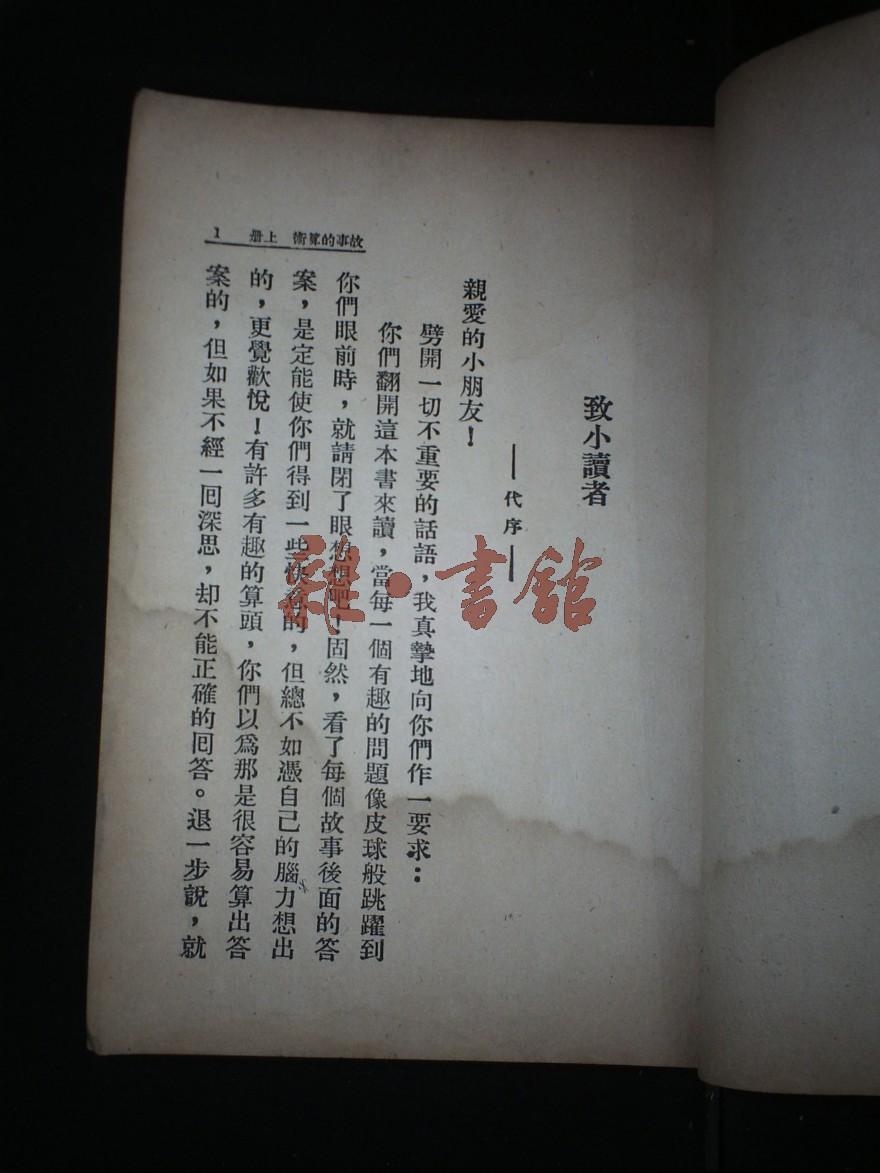 故事的算術 上册 1
致小讀者
——代序——
親愛的小朋友！
劈開一切不重要的話語，我真摯地向你們作一要求：
你們翻開這本書來讀，當每一個有趣的問題像皮球般跳躍到
你們眼前時，就請閉了眼想想吧！固然，看了每個故事後面的答
案，是定能使你們得到一些快意的，但總不如憑自己的腦力想出
的，更覺歡悅！有許多有趣的算頭，你們以爲那是很容易算出答
案的，但如果不經一囘深思，却不能正確的囘答。退一步說，就
雜·書館